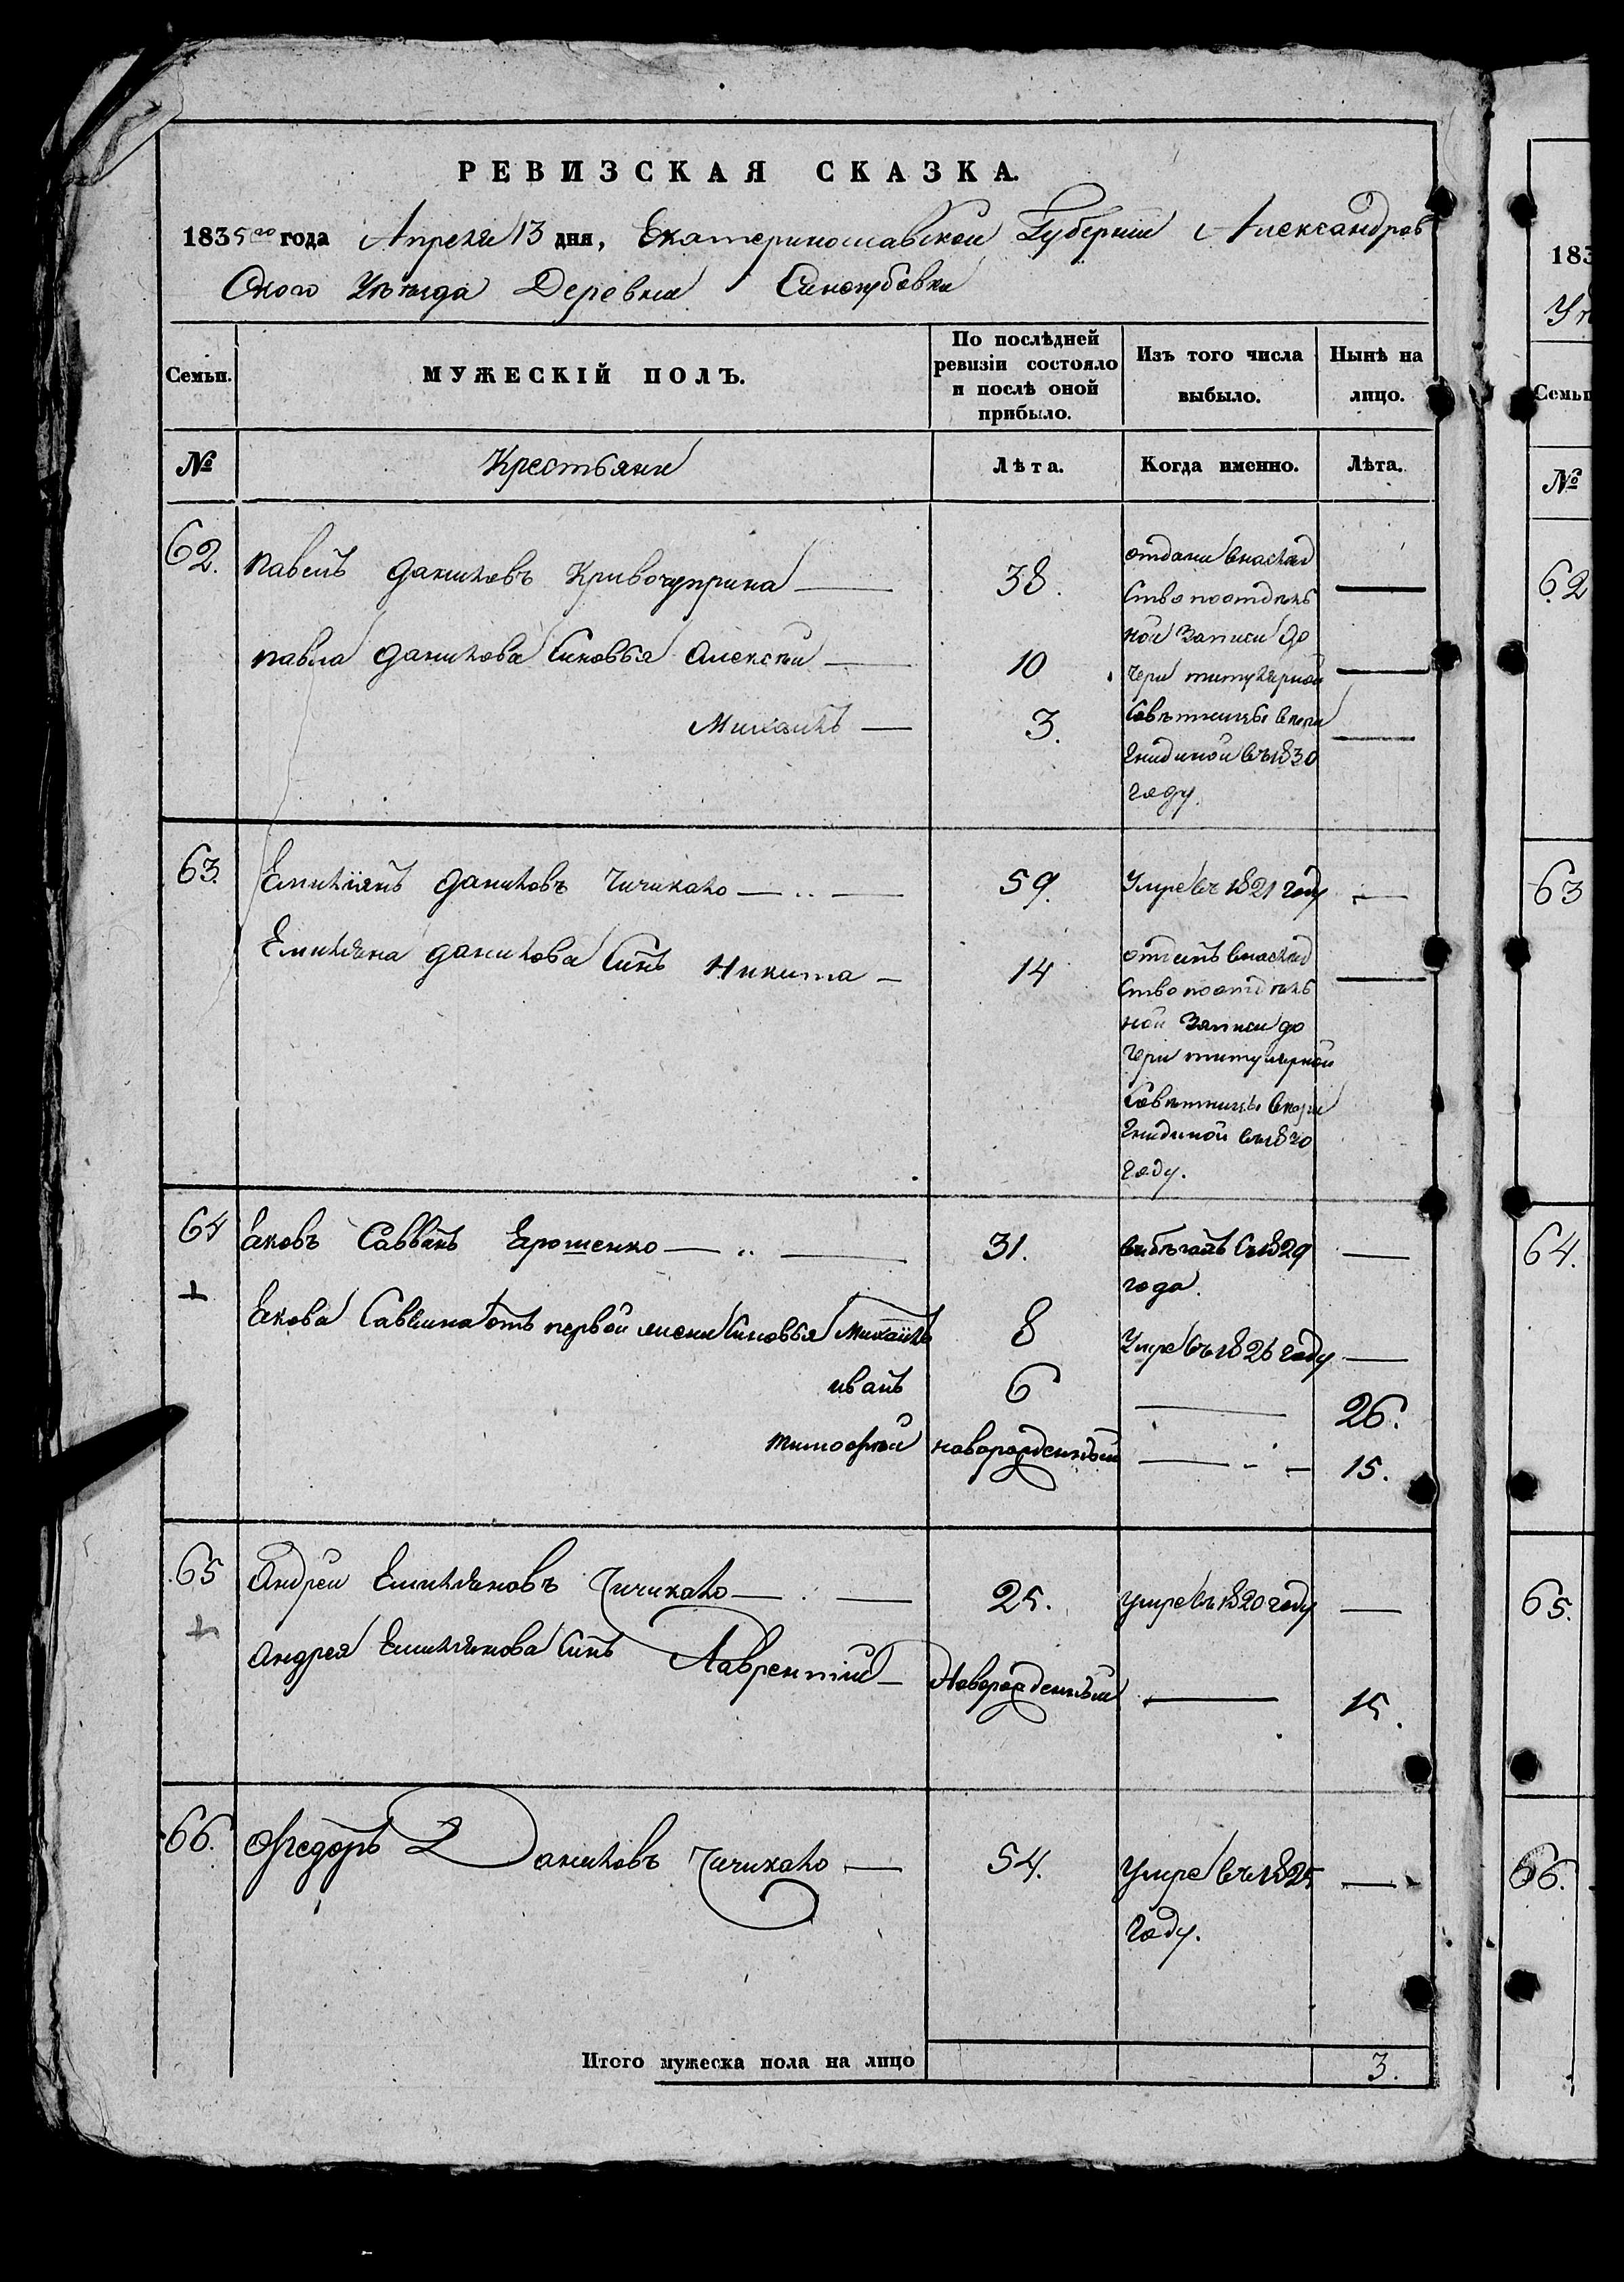 РЕВИЗСКАЯ СКАЗКА.
1835го года Апреля 13 дня, Екатеринославской Губернии Александров
Ского Уѣзда Деревни
Семьи. МУЖЕСКІЙ ПОЛЪ. По послѣдней ревизіи состояло и послѣ оной прибыло. Изъ того числа выбыло. Нынѣ на лицо.
№ Крестьяни Лѣта. Когда именно. Лѣта.
62. Павелъ Даниловъ Кривочуприна — 38. отдани внаслед —
Ство поотдѣль
ной Записи до
Павла Данилова Синовья Алексѣи — 10 чери титулярной —
Михаилъ — 3. Совѣтницы —
въ 1830
году.
63. Емилїянъ Даниловъ Чичикало — .. — 59. Умре въ 1821 году —
Емиляна Данилова Синъ Никита — 14 внаслед —
Ство поотдѣль
ной Записи до
чери титулярной
Совѣтницы
году.
64 Яковъ Саввинъ Ерошенко — .. — 31. въ бѣгахъ Съ 1829 —
года.
Якова Саввина отъ первой жени Синовья Михаїлъ 8 Умре въ 1826 году —
иванъ 6 — 26.
тимофѣй новорожденный — - — 15.
65 Андреи Емиляновъ Чичикало — . — 25. умре въ 1820 году —
Андрея Емилянова Синъ Лаврентїй — Новорожденный — 15.
66. Федоръ Даниловъ Чичикало — 54. умре въ 1825 —
году.
Итого мужеска пола на лицо 3.
183
Семьи
№
62
63
64.
65.
66.